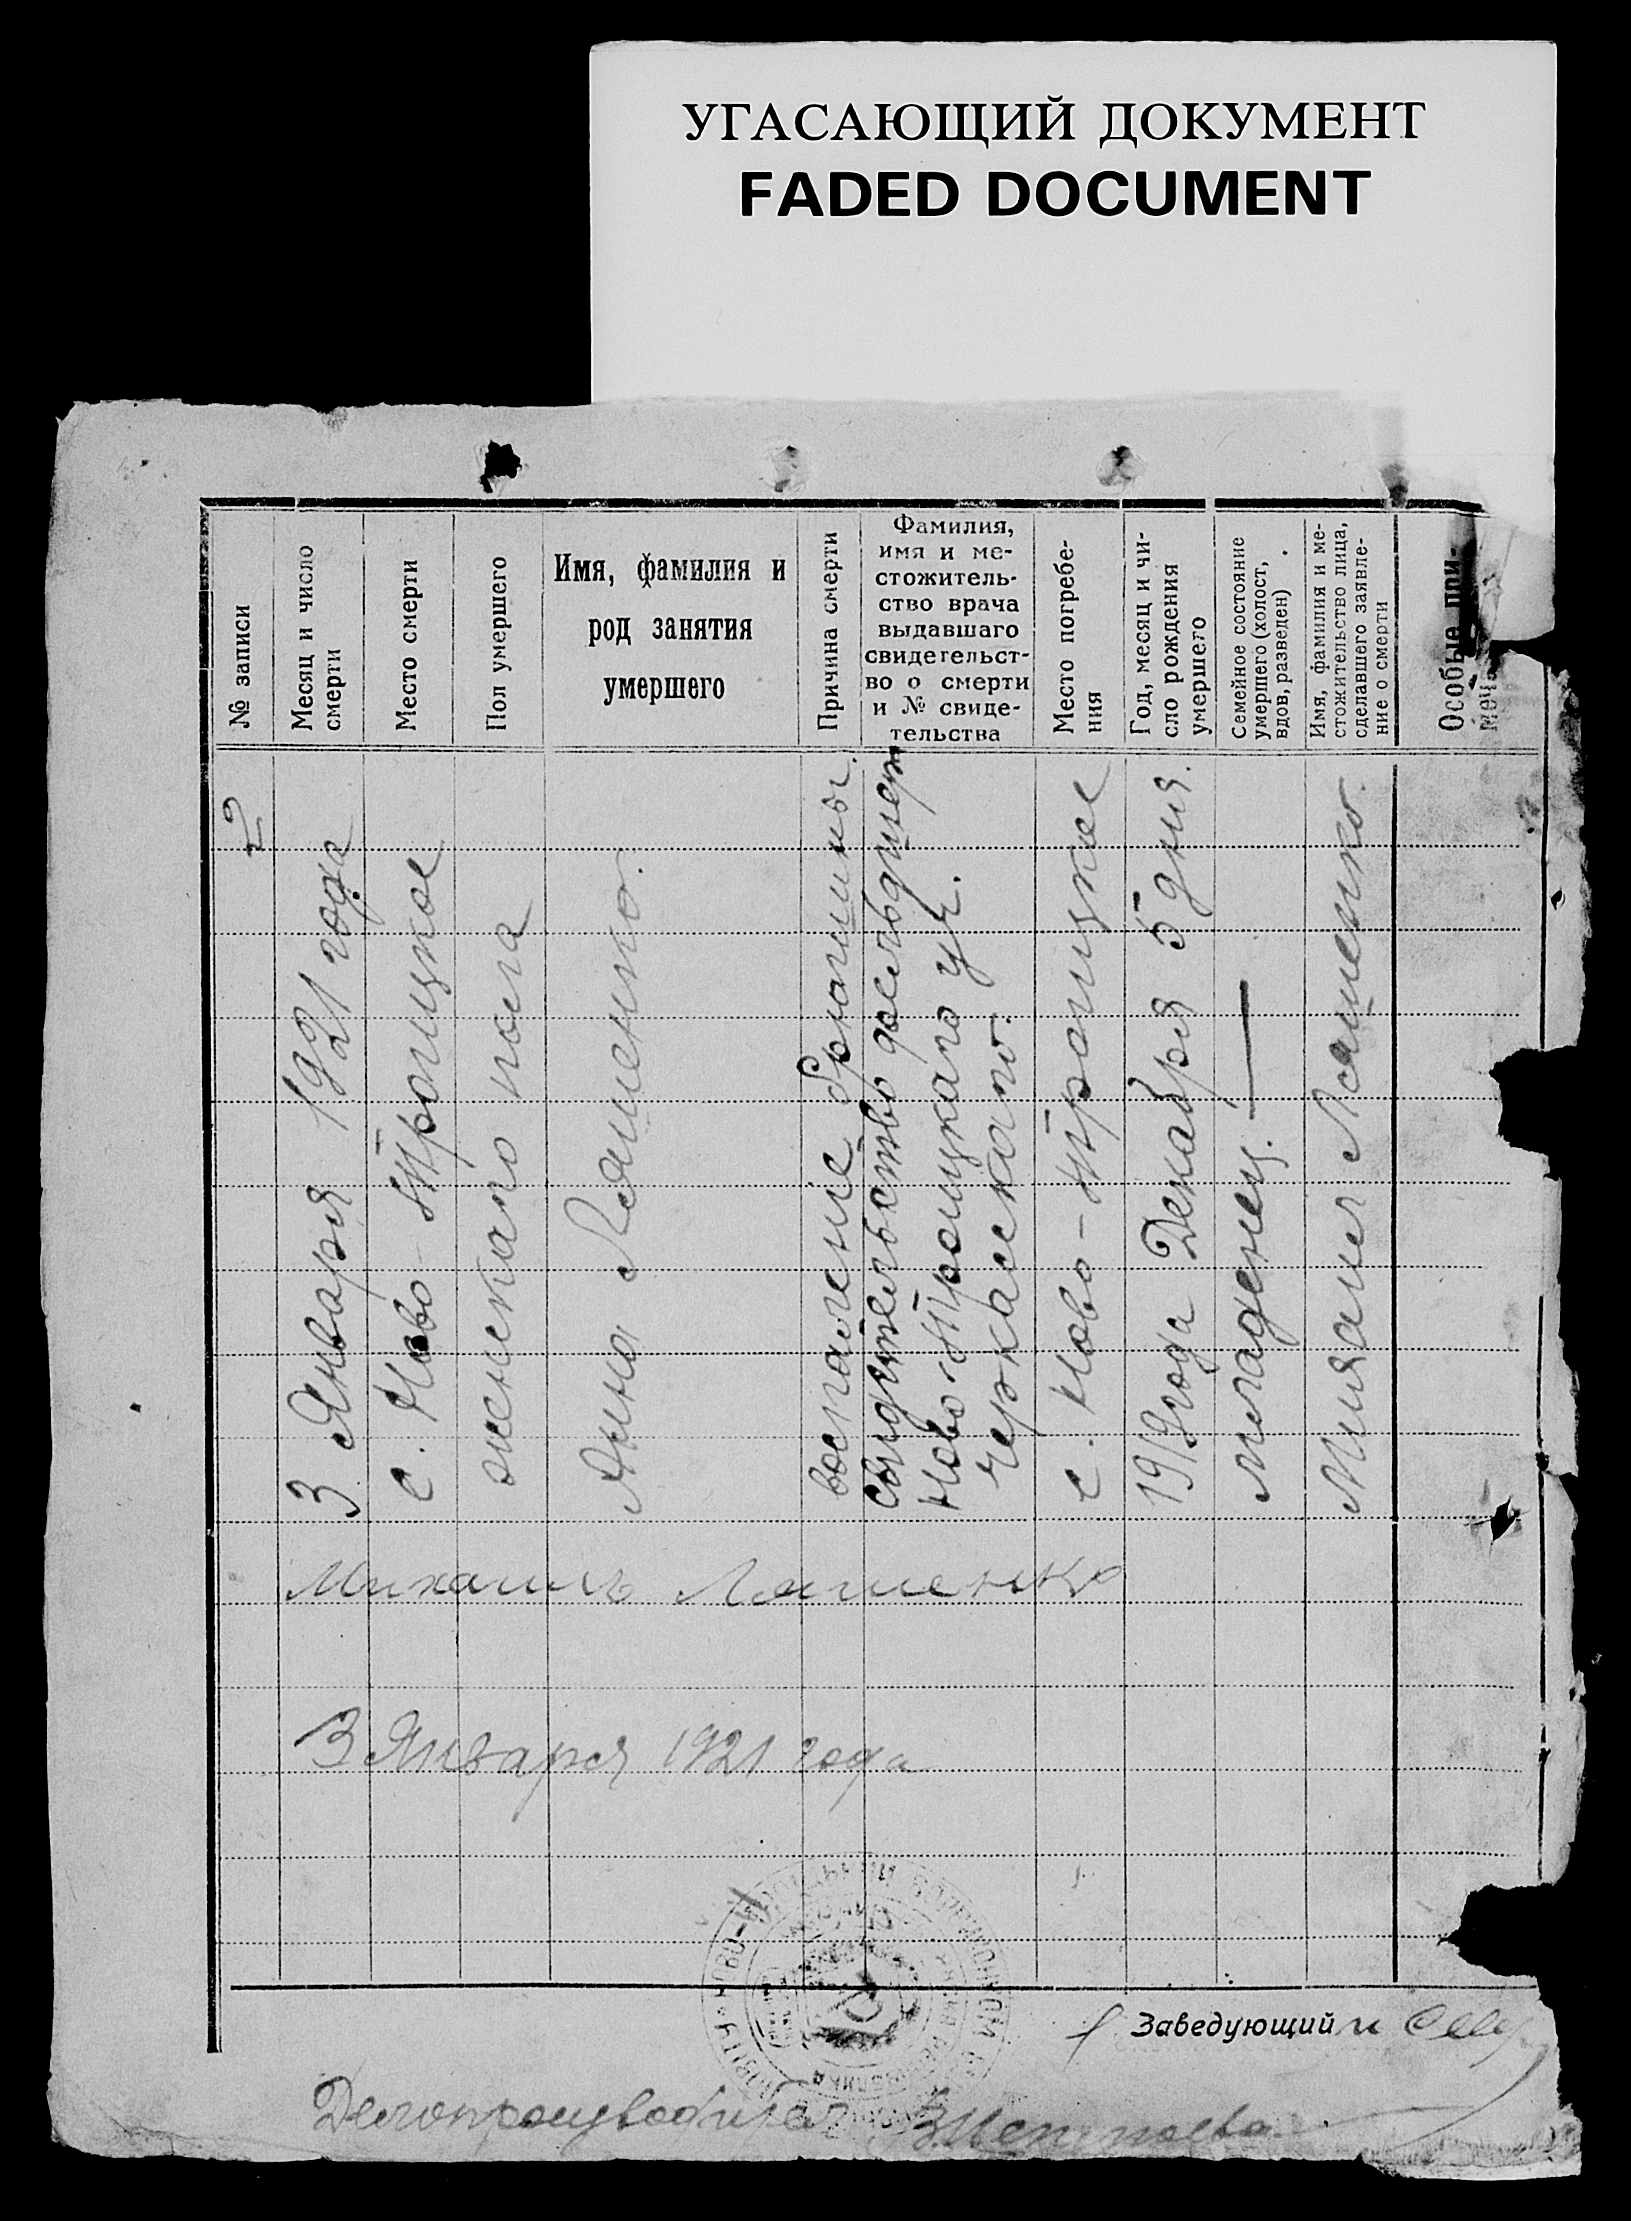 УГАСАЮЩИЙ ДОКУМЕНТ
FADED DOCUMENT
№ записи
Месяц и число
смерти
Место смерти
Пол умершего
Имя, фамилия и
род занятия
умершего
Причина смерти
Фамилия,
имя и ме-
стожитель-
ство врача
выдавшаго
свидетельст-
во о смерти
и № свиде-
тельства
Место погребе-
ния
Год, месяц и чи-
сло рождения
умершего
Семейное состояние
умершего (холост,
вдов, разведен)
Имя, фамилия и ме-
стожительство лица,
сделавшего заявле-
ние о смерти
Особые при-
меч
2
3 Января 1921 года
с. Ново-Троицкое
женскаго пола
Анна Ляшенко.
воспаление
свидетельство фельдшера
Ново-Троицкаго уч.
Черкаскаго.
с. Ново-Троицкое
1919 года Декабря 5 дня.
младенец. —
Михаил Ляшенко.
Михаилъ Ляшенко
3 Января 1921 года
Заведующий
Делопроизводитель